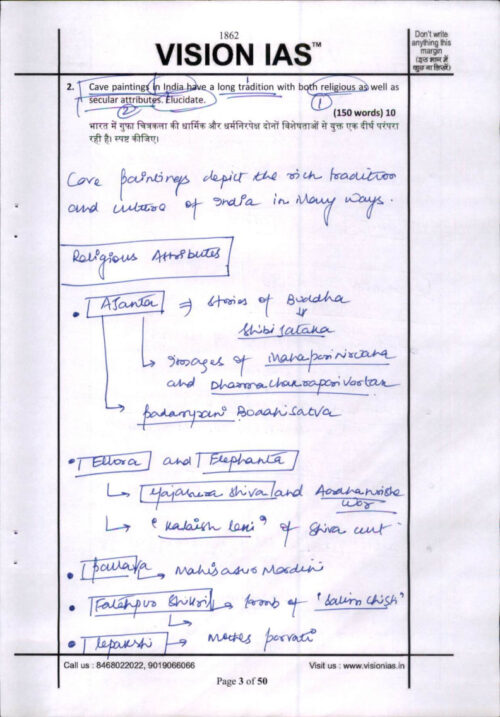 1862
VISION IAS™
Don't write
anything this
margin
(इस भाग में
कुछ ना लिखें)
2. Cave paintings in India have a long tradition with both religious as well as
secular attributes. Elucidate.
① ②
(150 words) 10
भारत में गुफा चित्रकला की धार्मिक और धर्मनिरपेक्ष दोनों विशेषताओं से युक्त एक दीर्घ परंपरा
रही है। स्पष्ट कीजिए।
Cave paintings depict the rich tradition
and culture of India in Many ways.
Religious Attributes
• Ajanta ⇒ Stories of Buddha
⇓
Shibi Jataka
↳ Images of Mahaparinirvana
and Dharmachakraparivartan
→ padampani Bodhisatva
• Ellora and Elephanta
↳ Shiva and
↳ "Kailash Leni" of Shiva
• → Mahisasur Mardini
• Fatehpur Shikri → tomb of "Salim Chisti"
• Lepakshi → parvati
Call us : 8468022022, 9019066066
Visit us : www.visionias.in
Page 3 of 50